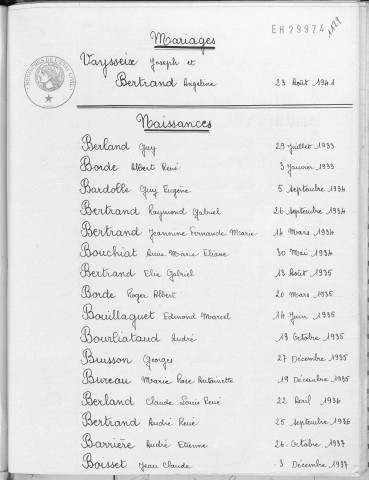 EH29974
Mariages
Vaysseix Joseph et
Bertrand Angeline 23 Août 1941
Naissances
Berland Guy 29 Juillet 1933
Borde Albert René 3 Janvier 1933
Bardolle Guy Eugène 5 Septembre 1934
Bertrand Raymond Gabriel 26 Septembre 1934
Bertrand Jeannine Fernande Marie 16 Mars 1934
Bouchiat Anne Marie Eliane 30 Mai 1934
Bertrand Elie Gabriel 13 Août 1935
Borde Roger Albert 20 Mars 1935
Bouillaguet Edmond Marcel 14 Juin 1935
Bourliataud André 13 Octobre 1935
Buisson Georges 27 Décembre 1935
Bureau Marie Rose Antoinette 19 Décembre 1935
Berland Claude Louis René 22 Avril 1936
Bertrand André René 25 Septembre 1936
Barrière André Etienne 26 Octobre 1937
Boisset Jean Claude 3 Décembre 1937